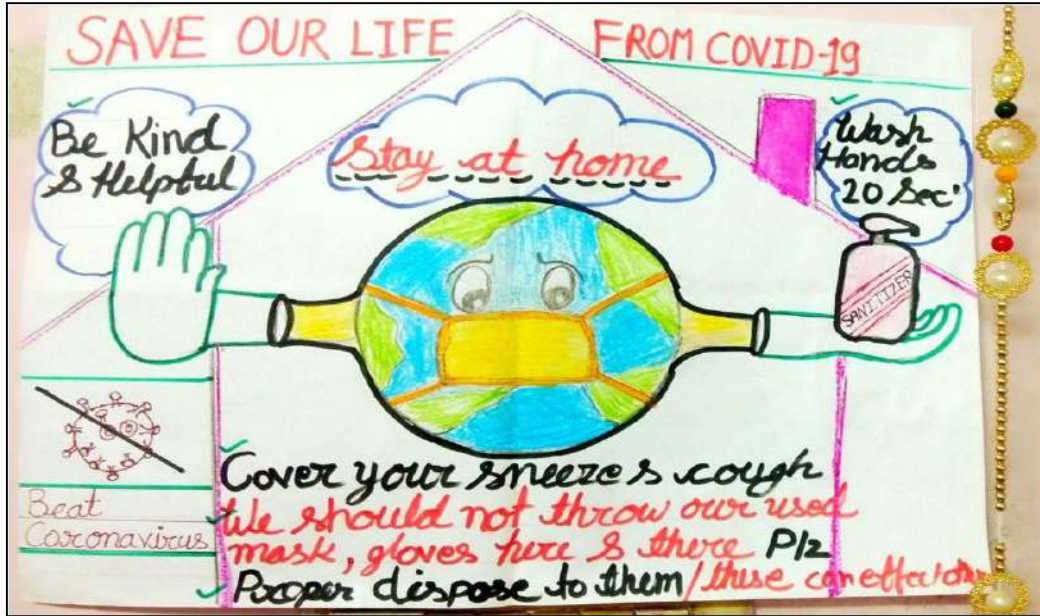 SAVE OUR LIFE FROM COVID-19
Be Kind
& Helpful
Stay at home
Wash
Hands
20 Sec'
SANITIZER
Beat
Coronavirus
Cover your sneeze & cough
We should not throw our used
mask, gloves here & there Plz
Proper dispose to them/these can effect